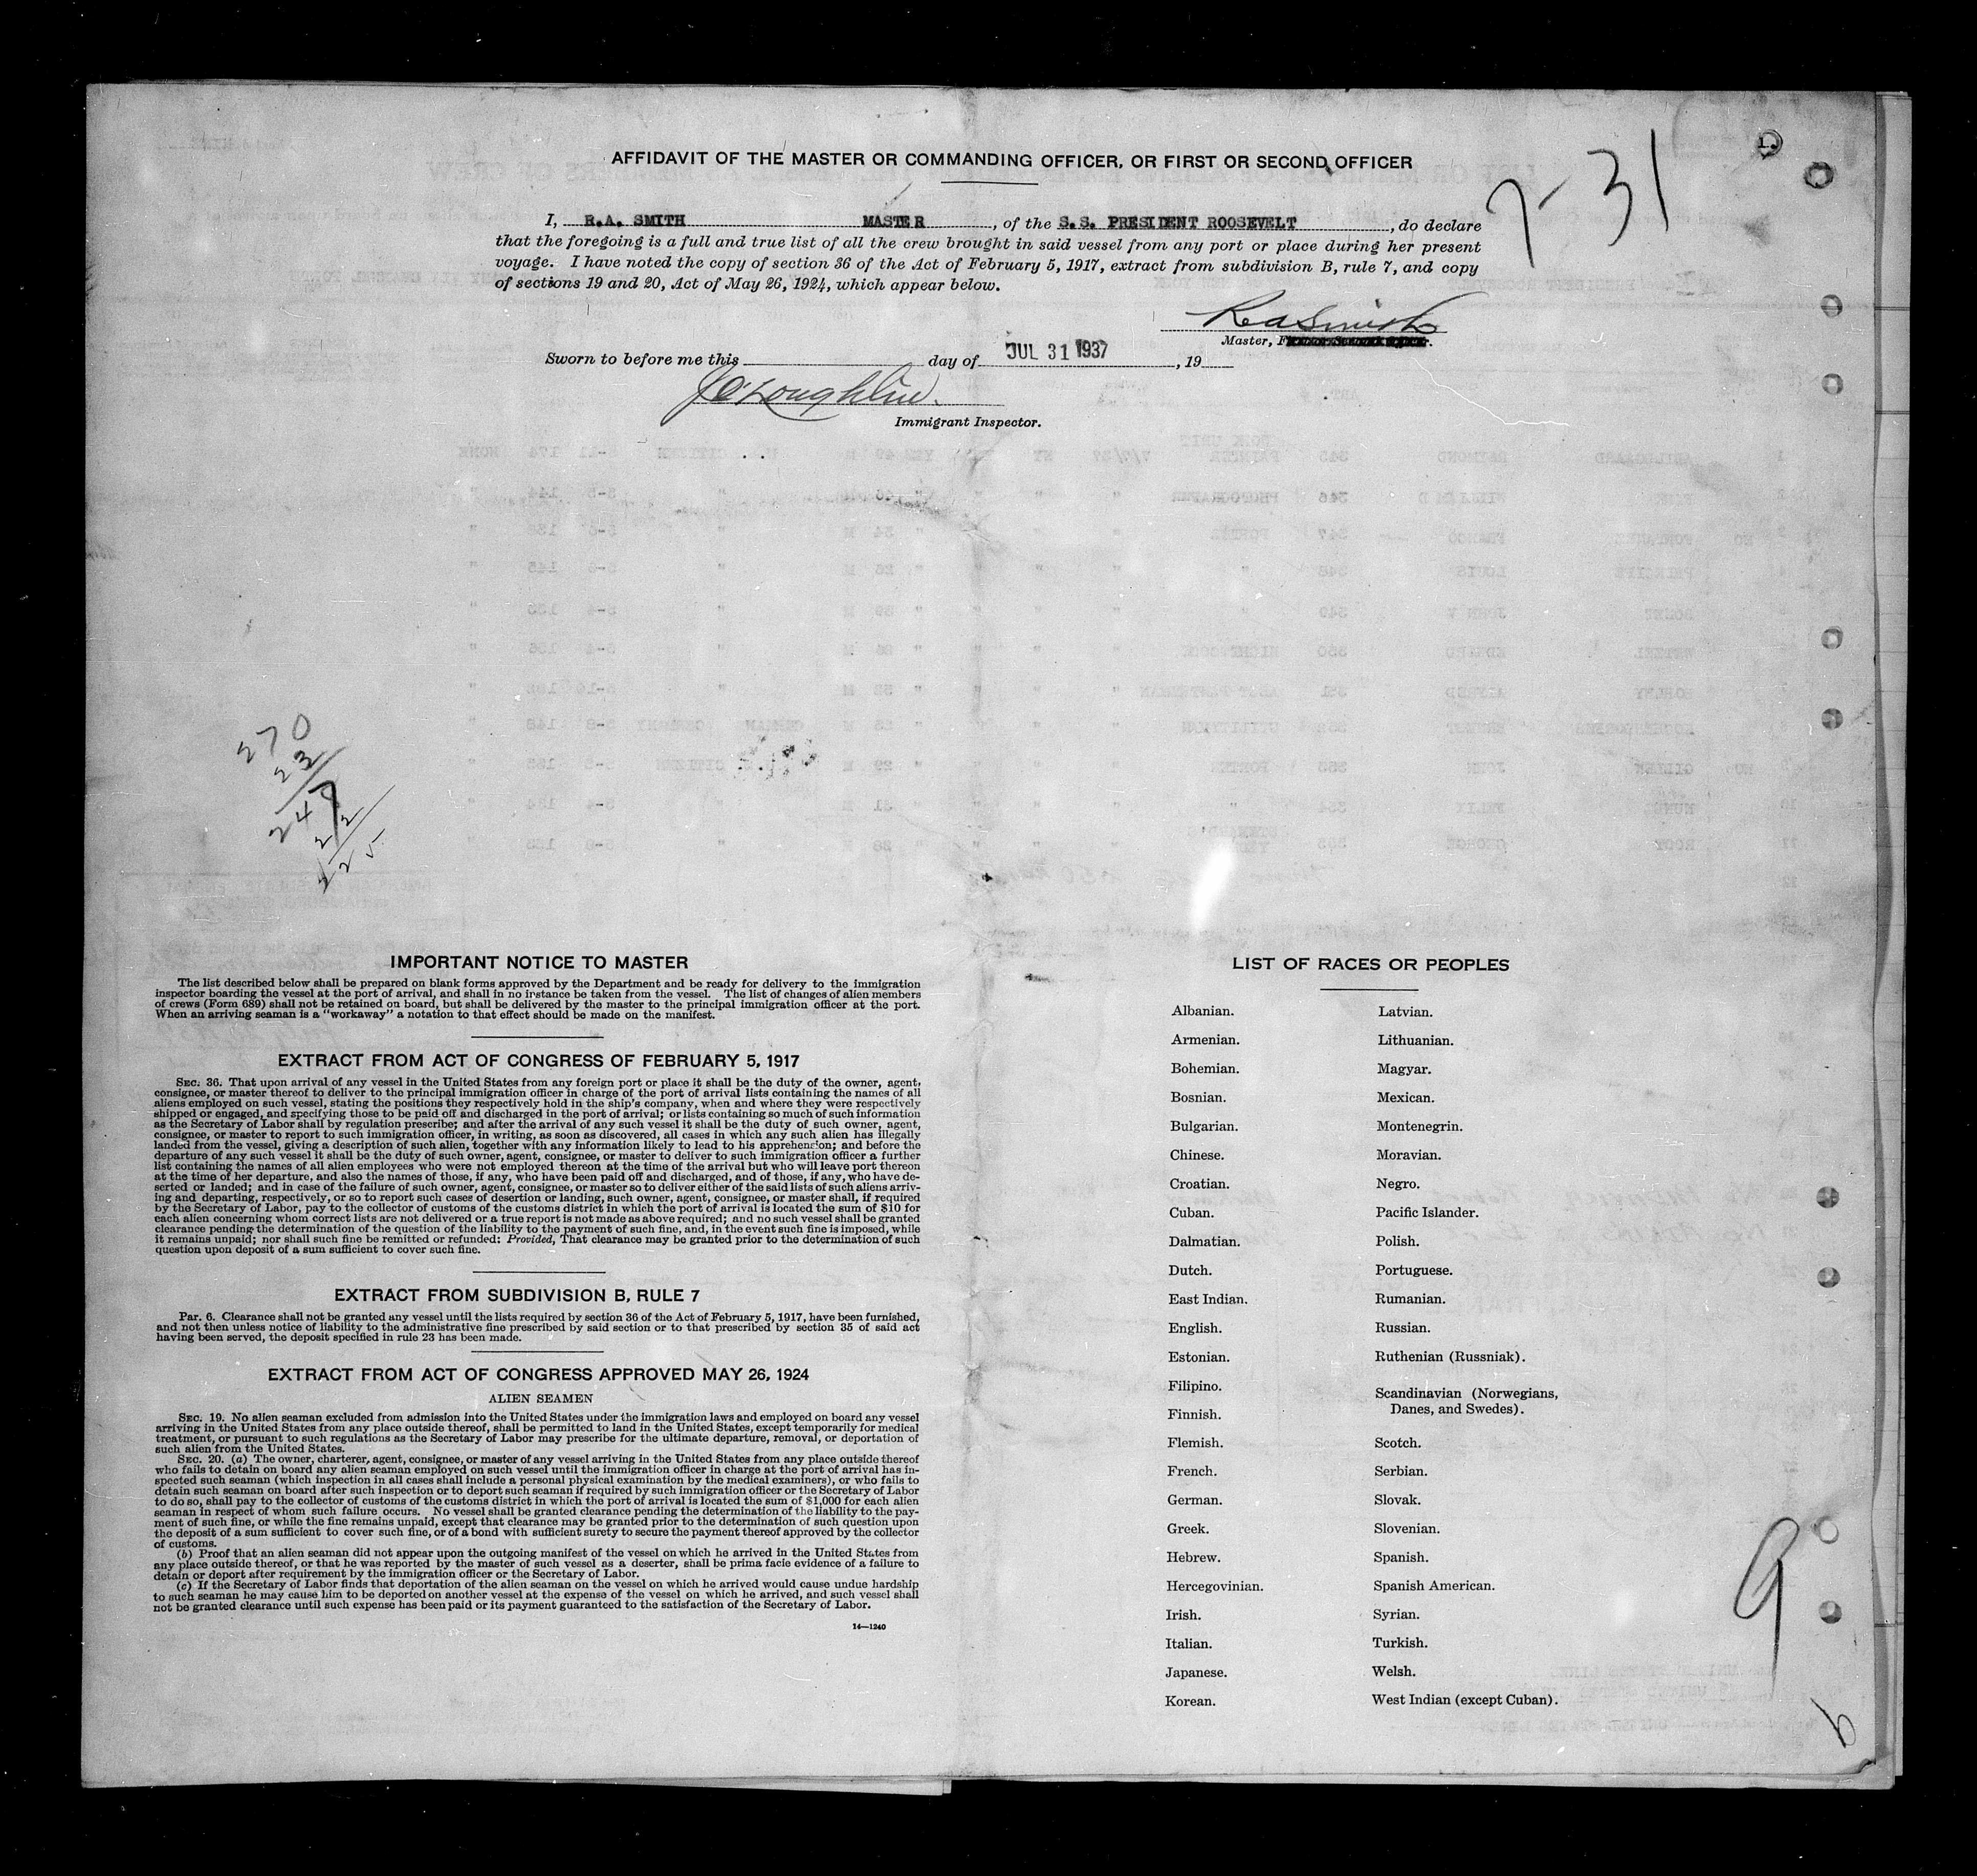 1.
AFFIDAVIT OF THE MASTER OR COMMANDING OFFICER, OR FIRST OR SECOND OFFICER
7-31
I, R.A. SMITH MASTER, of the S.S. PRESIDENT ROOSEVELT, do declare
that the foregoing is a full and true list of all the crew brought in said vessel from any port or place during her present
voyage. I have noted the copy of section 36 of the Act of February 5, 1917, extract from subdivision B, rule 7, and copy
of sections 19 and 20, Act of May 26, 1924, which appear below.
Master,
Sworn to before me this day of JUL 31 1937, 19
J O'Loughlin.
Immigrant Inspector.
270
23
247
22
225
IMPORTANT NOTICE TO MASTER
The list described below shall be prepared on blank forms approved by the Department and be ready for delivery to the immigration
inspector boarding the vessel at the port of arrival, and shall in no instance be taken from the vessel. The list of changes of alien members
of crews (Form 689) shall not be retained on board, but shall be delivered by the master to the principal immigration officer at the port.
When an arriving seaman is a "workaway" a notation to that effect should be made on the manifest.
EXTRACT FROM ACT OF CONGRESS OF FEBRUARY 5, 1917
SEC. 36. That upon arrival of any vessel in the United States from any foreign port or place it shall be the duty of the owner, agent,
consignee, or master thereof to deliver to the principal immigration officer in charge of the port of arrival lists containing the names of all
aliens employed on such vessel, stating the positions they respectively hold in the ship's company, when and where they were respectively
shipped or engaged, and specifying those to be paid off and discharged in the port of arrival; or lists containing so much of such information
as the Secretary of Labor shall by regulation prescribe; and after the arrival of any such vessel it shall be the duty of such owner, agent,
consignee, or master to report to such immigration officer, in writing, as soon as discovered, all cases in which any such alien has illegally
landed from the vessel, giving a description of such alien, together with any information likely to lead to his apprehension; and before the
departure of any such vessel it shall be the duty of such owner, agent, consignee, or master to deliver to such immigration officer a further
list containing the names of all alien employees who were not employed thereon at the time of the arrival but who will leave port thereon
at the time of her departure, and also the names of those, if any, who have been paid off and discharged, and of those, if any, who have de-
serted or landed; and in case of the failure of such owner, agent, consignee, or master so to deliver either of the said lists of such aliens arriv-
ing and departing, respectively, or so to report such cases of desertion or landing, such owner, agent, consignee, or master shall, if required
by the Secretary of Labor, pay to the collector of customs of the customs district in which the port of arrival is located the sum of $10 for
each alien concerning whom correct lists are not delivered or a true report is not made as above required; and no such vessel shall be granted
clearance pending the determination of the question of the liability to the payment of such fine, and, in the event such fine is imposed, while
it remains unpaid; nor shall such fine be remitted or refunded: Provided, That clearance may be granted prior to the determination of such
question upon deposit of a sum sufficient to cover such fine.
EXTRACT FROM SUBDIVISION B, RULE 7
Par. 6. Clearance shall not be granted any vessel until the lists required by section 36 of the Act of February 5, 1917, have been furnished,
and not then unless notice of liability to the administrative fine prescribed by said section or to that prescribed by section 35 of said act
having been served, the deposit specified in rule 23 has been made.
EXTRACT FROM ACT OF CONGRESS APPROVED MAY 26, 1924
ALIEN SEAMEN
SEC. 19. No alien seaman excluded from admission into the United States under the immigration laws and employed on board any vessel
arriving in the United States from any place outside thereof, shall be permitted to land in the United States, except temporarily for medical
treatment, or pursuant to such regulations as the Secretary of Labor may prescribe for the ultimate departure, removal, or deportation of
such alien from the United States.
SEC. 20. (a) The owner, charterer, agent, consignee, or master of any vessel arriving in the United States from any place outside thereof
who fails to detain on board any alien seaman employed on such vessel until the immigration officer in charge at the port of arrival has in-
spected such seaman (which inspection in all cases shall include a personal physical examination by the medical examiners), or who fails to
detain such seaman on board after such inspection or to deport such seaman if required by such immigration officer or the Secretary of Labor
to do so, shall pay to the collector of customs of the customs district in which the port of arrival is located the sum of $1,000 for each alien
seaman in respect of whom such failure occurs. No vessel shall be granted clearance pending the determination of the liability to the pay-
ment of such fine, or while the fine remains unpaid, except that clearance may be granted prior to the determination of such question upon
the deposit of a sum sufficient to cover such fine, or of a bond with sufficient surety to secure the payment thereof approved by the collector
of customs.
(b) Proof that an alien seaman did not appear upon the outgoing manifest of the vessel on which he arrived in the United States from
any place outside thereof, or that he was reported by the master of such vessel as a deserter, shall be prima facie evidence of a failure to
detain or deport after requirement by the immigration officer or the Secretary of Labor.
(c) If the Secretary of Labor finds that deportation of the alien seaman on the vessel on which he arrived would cause undue hardship
to such seaman he may cause him to be deported on another vessel at the expense of the vessel on which he arrived, and such vessel shall
not be granted clearance until such expense has been paid or its payment guaranteed to the satisfaction of the Secretary of Labor.
14—1240
LIST OF RACES OR PEOPLES
Albanian.
Armenian.
Bohemian.
Bosnian.
Bulgarian.
Chinese.
Croatian.
Cuban.
Dalmatian.
Dutch.
East Indian.
English.
Estonian.
Filipino.
Finnish.
Flemish.
French.
German.
Greek.
Hebrew.
Hercegovinian.
Irish.
Italian.
Japanese.
Korean.
Latvian.
Lithuanian.
Magyar.
Mexican.
Montenegrin.
Moravian.
Negro.
Pacific Islander.
Polish.
Portuguese.
Rumanian.
Russian.
Ruthenian (Russniak).
Scandinavian (Norwegians,
Danes, and Swedes).
Scotch.
Serbian.
Slovak.
Slovenian.
Spanish.
Spanish American.
Syrian.
Turkish.
Welsh.
West Indian (except Cuban).
9
6